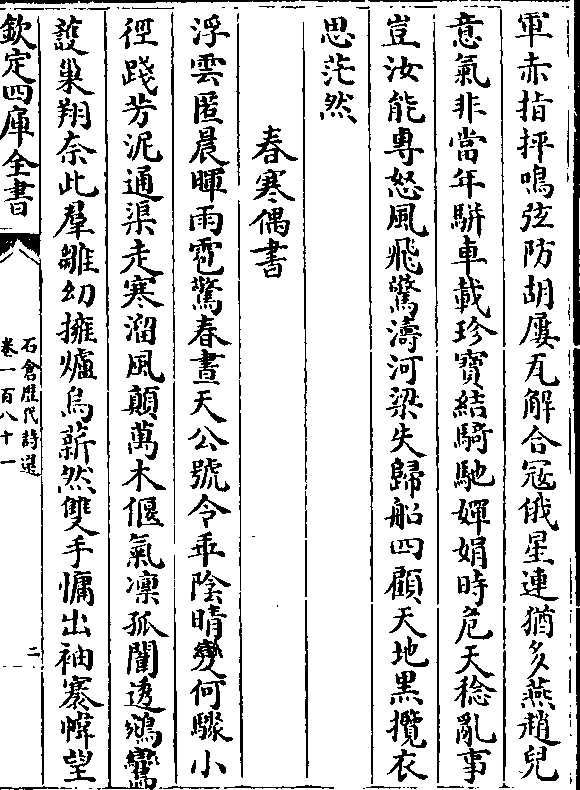 軍赤指抨鳴弦防胡屢瓦解合寇俄星連猶多燕趙兒
意氣非當年駢車載珍寶結騎馳嬋娟時危天稔亂事
豈汝能專怒風飛驚濤河梁失歸船四顧天地黑攬衣
思茫然
春寒偶書
浮雲匿晨暉雨雹驚春晝天公號令乖陰晴變何驟小
徑踐芳泥通渠走寒溜風顛萬木偃氣凛孤闈透鵷鸞
護巢翔奈此羣雛幼擁爐烏薪然雙手慵出袖褰幃望
欽定四庫全書
石倉歷代詩選
卷一百八十一
二